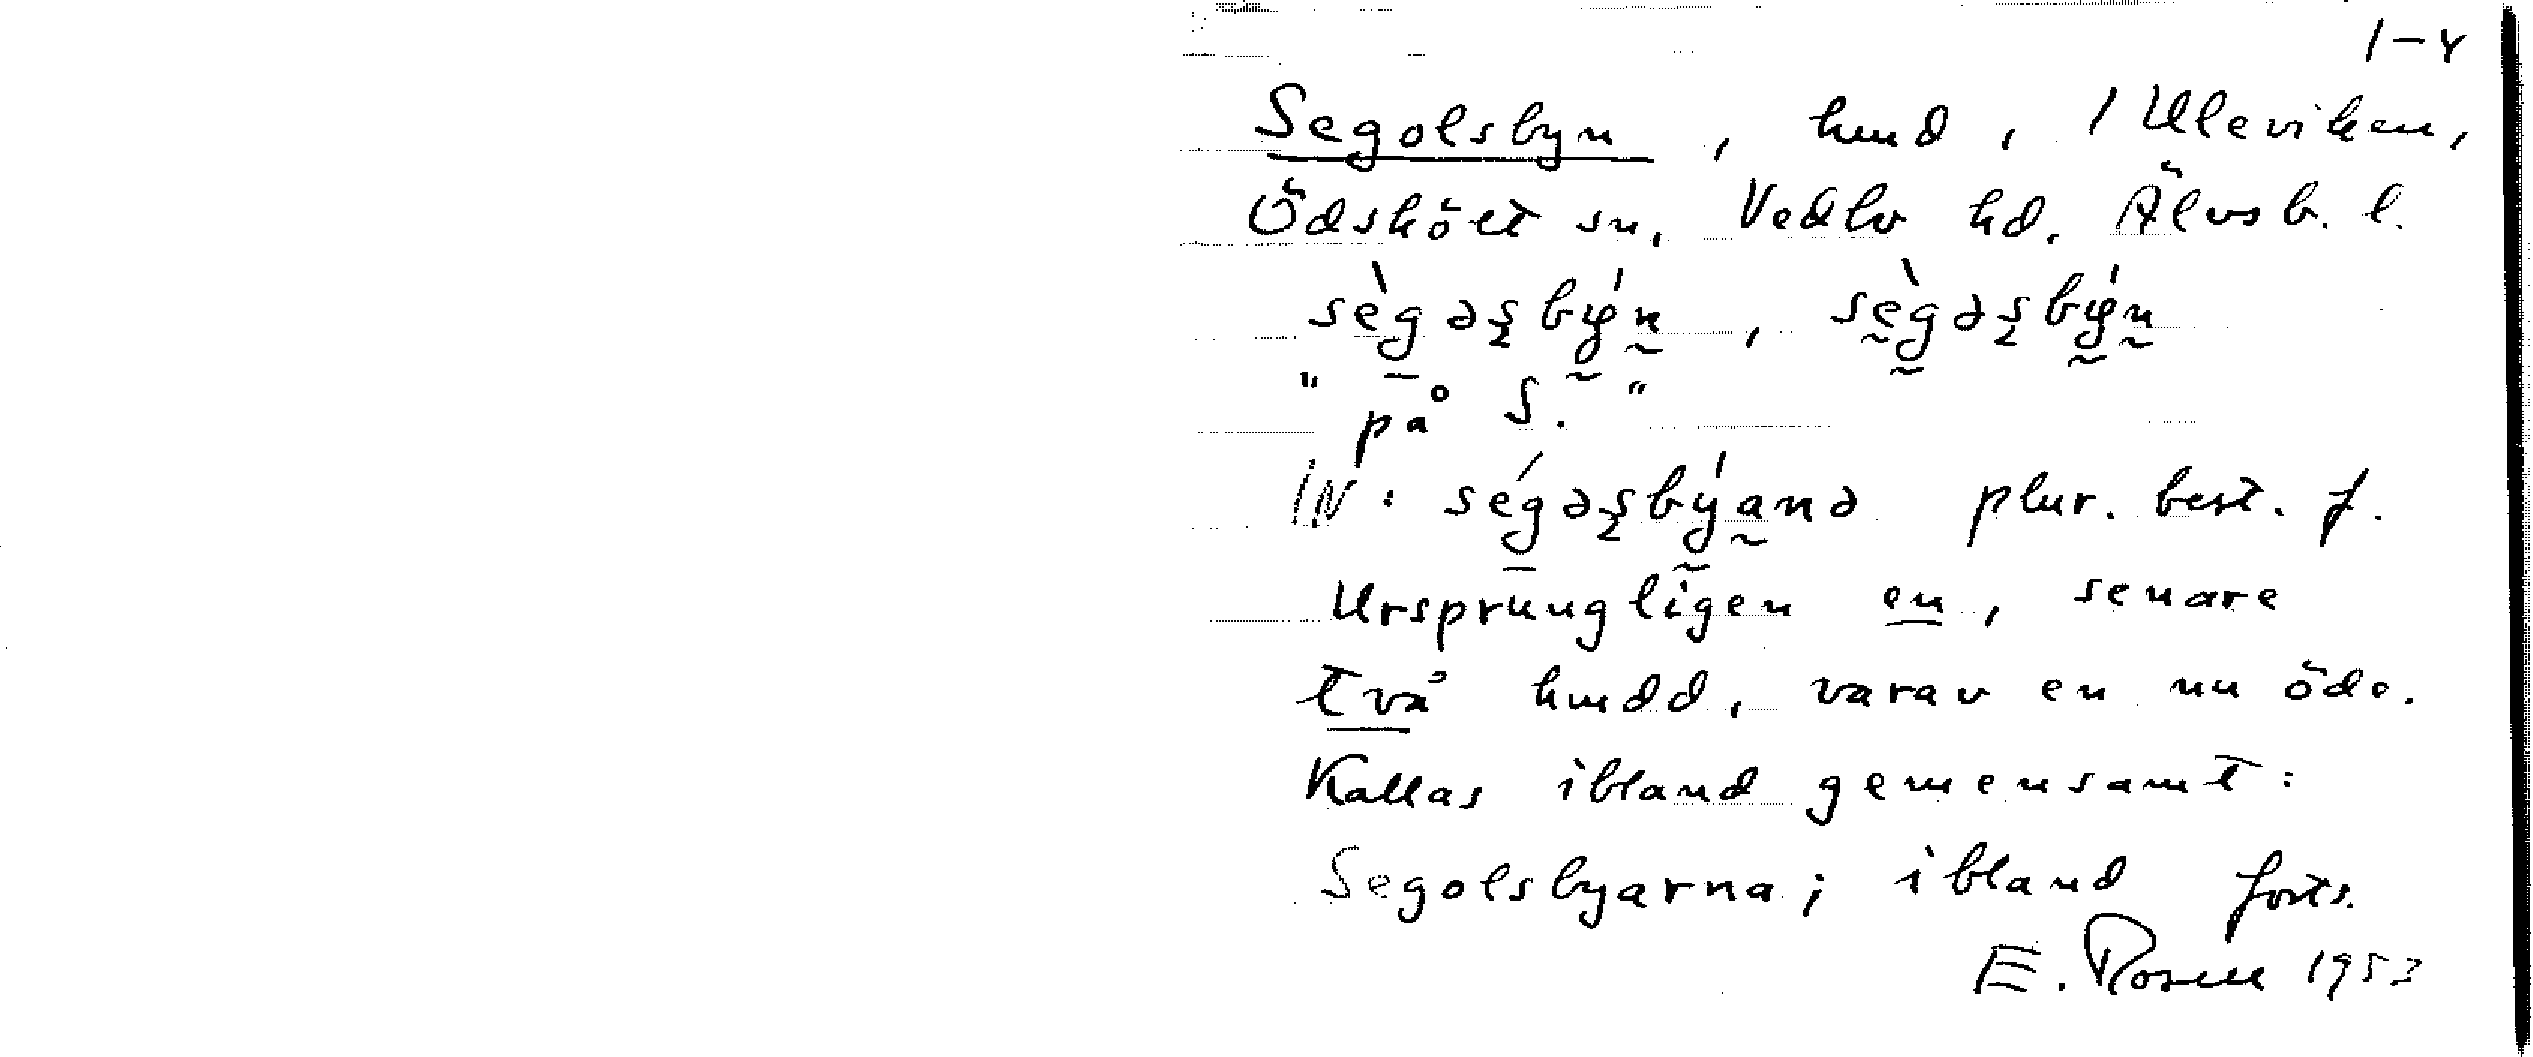 1-4
Segolsbyn, hmd, 1 Uleviken,
Ödskölt sn, Vedbo hd. Älvsb. l.
sègəʂbýn, sègəʂbýn
" på S. "
IN: ségəʂbýanə plur. best. f.
Ursprungligen en, senare
två hmdd, varav en nu öde.
Kallas ibland gemensamt:
Segolsbyarna; ibland forts.
E. Rosell 1953